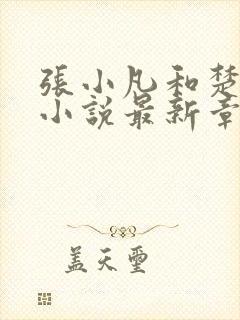 張小凡和楚
小說最新章
蓋天璽